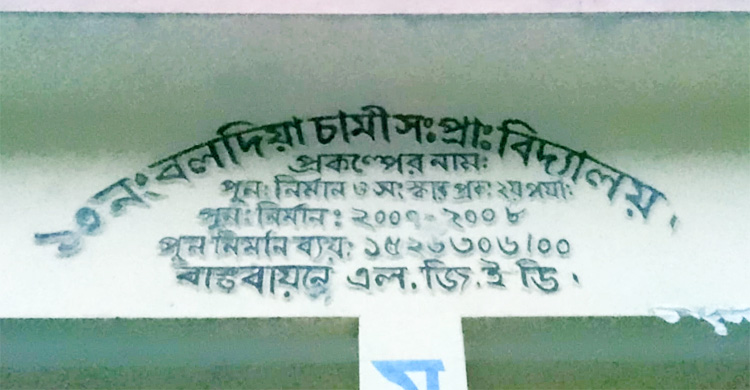 ১৩নং বলদিয়া চামী সঃ প্রাঃ বিদ্যালয়।
প্রকল্পের নাম:
পুন: নির্মান ও সংস্কার প্রক: ২য় পর্যা:
পুন: নির্মান: ২০০৭-২০০৮
পুন নির্মান ব্যয়: ১৫২৬৩০৬/০০
বাস্তবায়নে এল.জি.ই ডি।